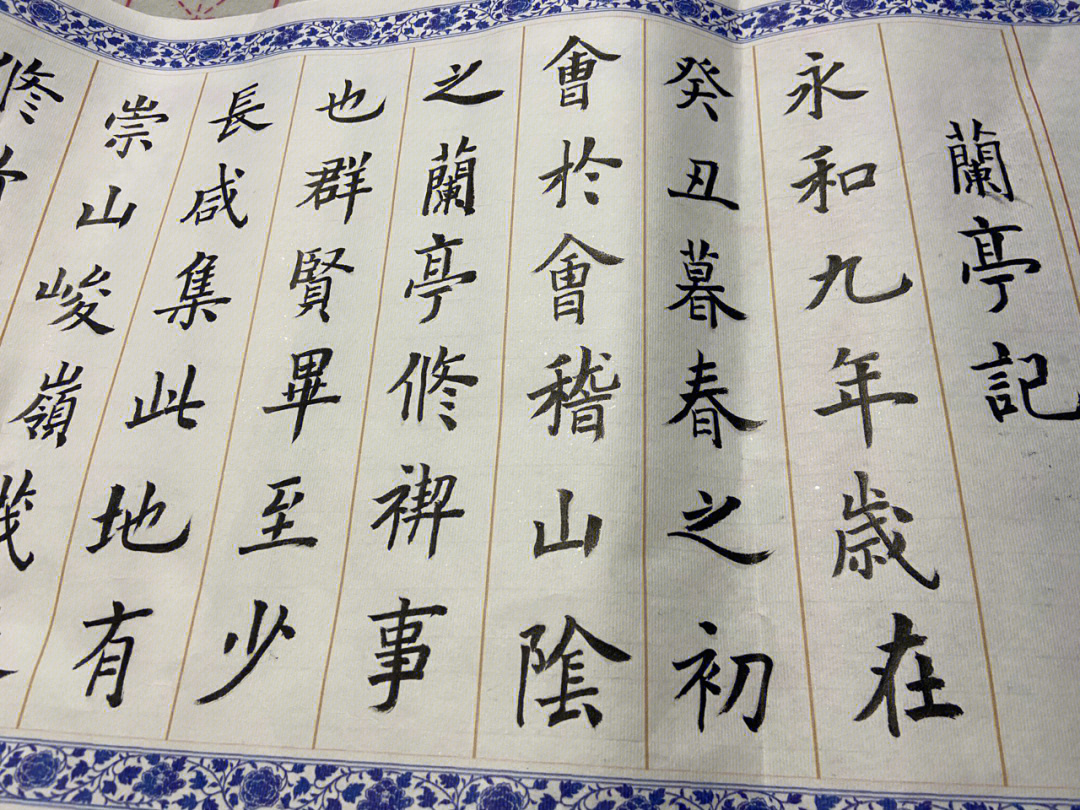 蘭亭記
永和九年歲在
癸丑暮春之初
會於會稽山陰
之蘭亭修禊事
也群賢畢至少
長咸集此地有
崇山峻嶺茂
修